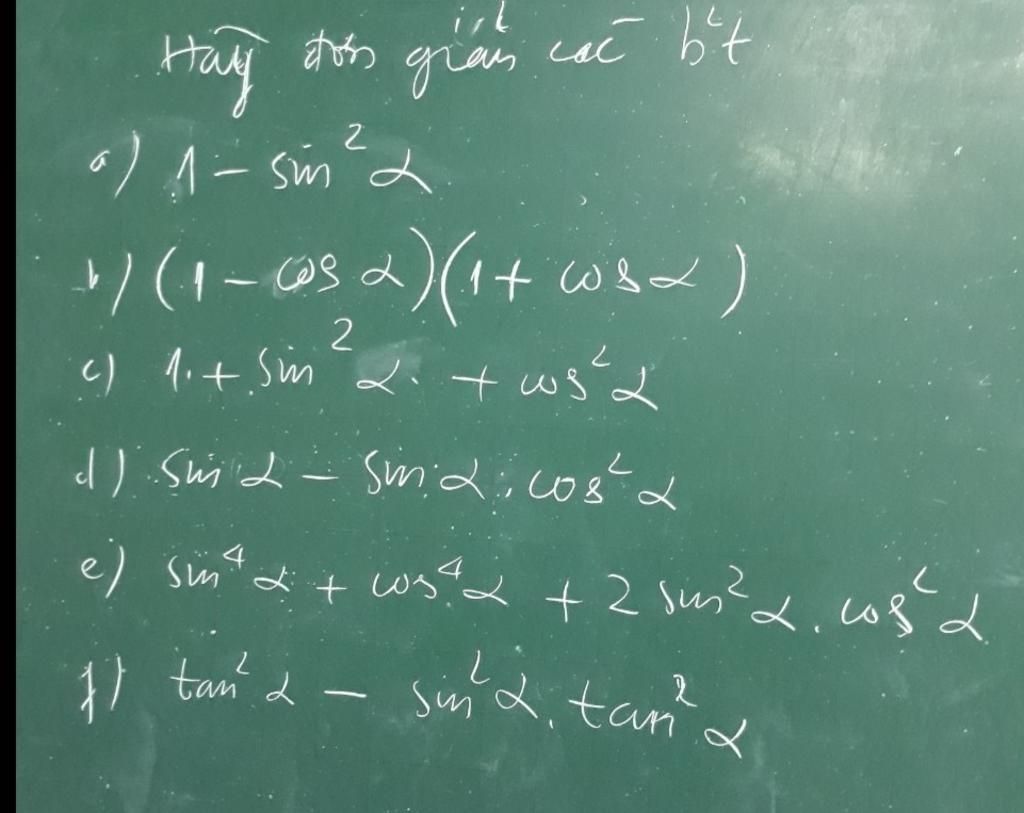 Hãy đơn giản các b²t
a) 1 - sin² α
b) (1 - cos α)(1 + cos α)
c) 1 + sin² α + cos² α
d) sin α - sin α . cos² α
e) sin⁴ α + cos⁴ α + 2 sin² α . cos² α
f) tan² α - sin² α . tan² α